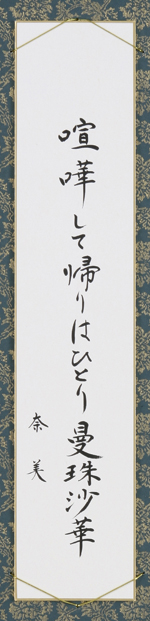 喧嘩して帰りはひとり曼珠沙華
奈美